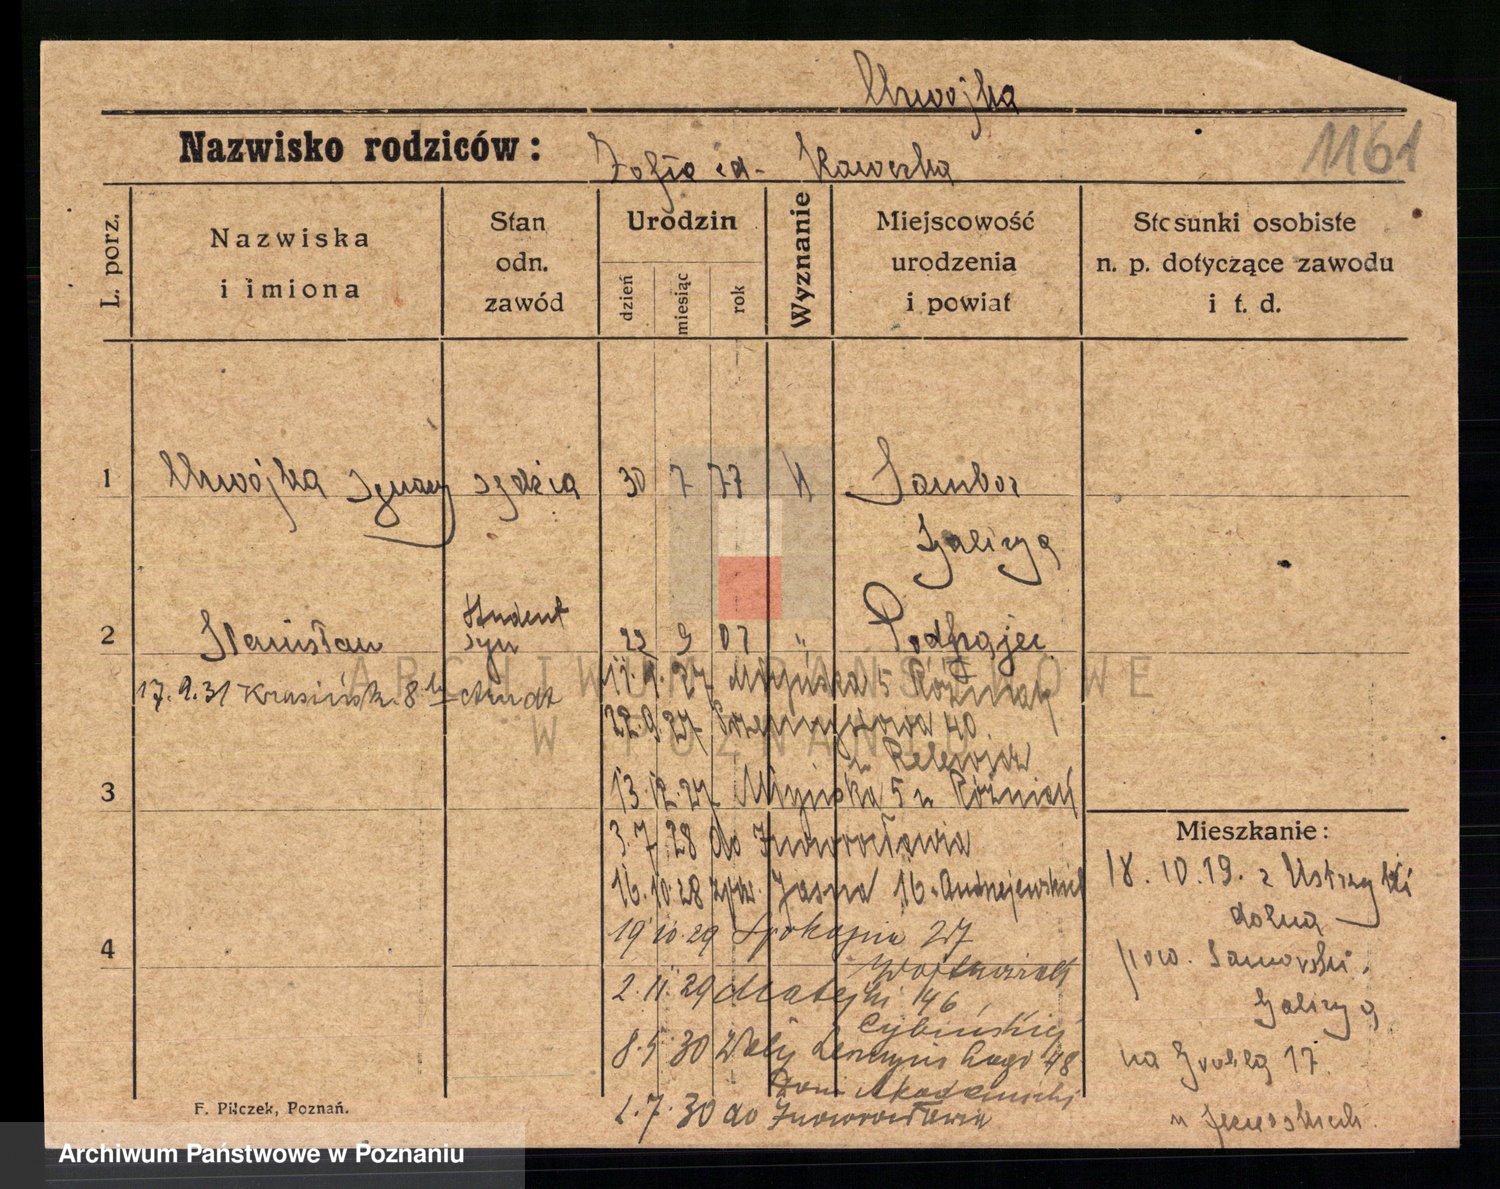 Nazwisko rodziców:
Zofia Kaweska
1161
L. porz.
Nazwiska
i imiona
Stan
odn.
zawód
Urodzin
dzień
miesiąc
rok
Wyznanie
Miejscowość
urodzenia
i powiat
Stosunki osobiste
n. p. dotyczące zawodu
i t. d.
1 Ignacy sędzia 30 7 77 Sambor
Galicya
student
2 Stanisław syn 22 9 07 " Podhajce
17.9.31 Krasińsk. 8
11.9.27 Młyńska 5
22.9.27 40.
3 13.12.27 Młyńska 5
3.7.28 do Inowrocławia
16.10.28 Jasna 16.
19 10.29 Spokojna 27
4
2.11.29 Matejki 46
8.5.30 Wały Leszczyńskiego 48
Dom Akademicki
1.7.30 do Inowrocławia
Mieszkanie:
18.10.19. z Ustrzyki
dolne
pow.
Galicya
na Groblą 17.
F. Pilczek, Poznań.
ARCHIWUM PAŃSTWOWE
W POZNANIU
Archiwum Państwowe w Poznaniu